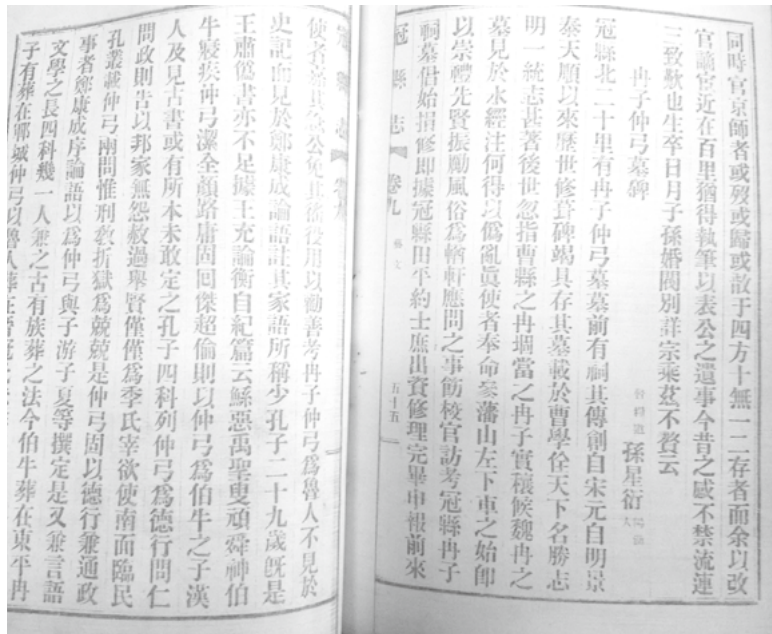 同時官京師者或歿或歸或散于四方十無一二存者而余以改
官謫宦近在百里猶得執筆以表公之遺事今昔之感不禁流連
三致歎也生卒日月子孫婚閥別詳宗乘茲不贅云
冉子仲弓墓碑
孫星衍
冠縣北二十里有冉子仲弓墓墓前有祠其傳創自宋元自明景
泰天順以來歷世修葺碑碣具存其墓載於曹學佺天下名勝志
明一統志甚著後世忽指曹縣之冉堌當之冉子實穰候魏冉之
墓見於水經注何得以偽亂真使者奉命參藩山左下車之始即
以崇禮先賢振勵風俗為輶軒應問之事飭梭官訪考冠縣冉子
祠墓倡始捐修即據冠縣田平約士庶出資修理完畢申報前來
冠縣志
卷九
藝文
五十五
使者
公免其徭役用以勸善考冉子仲弓為魯人不見於
史記而見於鄭康成論語註其家語所稱少孔子二十九歲旣是
王肅偽書亦不足據王充論衡自紀篇云鯀惡禹聖叟頑舜神伯
牛寢疾仲弓潔全顏路庸固回傑超倫則以仲弓為伯牛之子漢
人及見古書或有所本未敢定之孔子四科列仲弓為德行問仁
問政則告以邦家無怨赦過舉賢僅僅為季氏宰欲使南面臨民
孔叢載仲弓兩問惟刑教折獄為兢兢是仲弓固以德行兼通政
事者鄭康成序論語以為仲弓與子游子夏等撰定是又兼言語
文學之長四科幾一人兼之古有族葬之法今伯牛葬在東平冉
子有葬在鄆城仲弓以魯人葬在